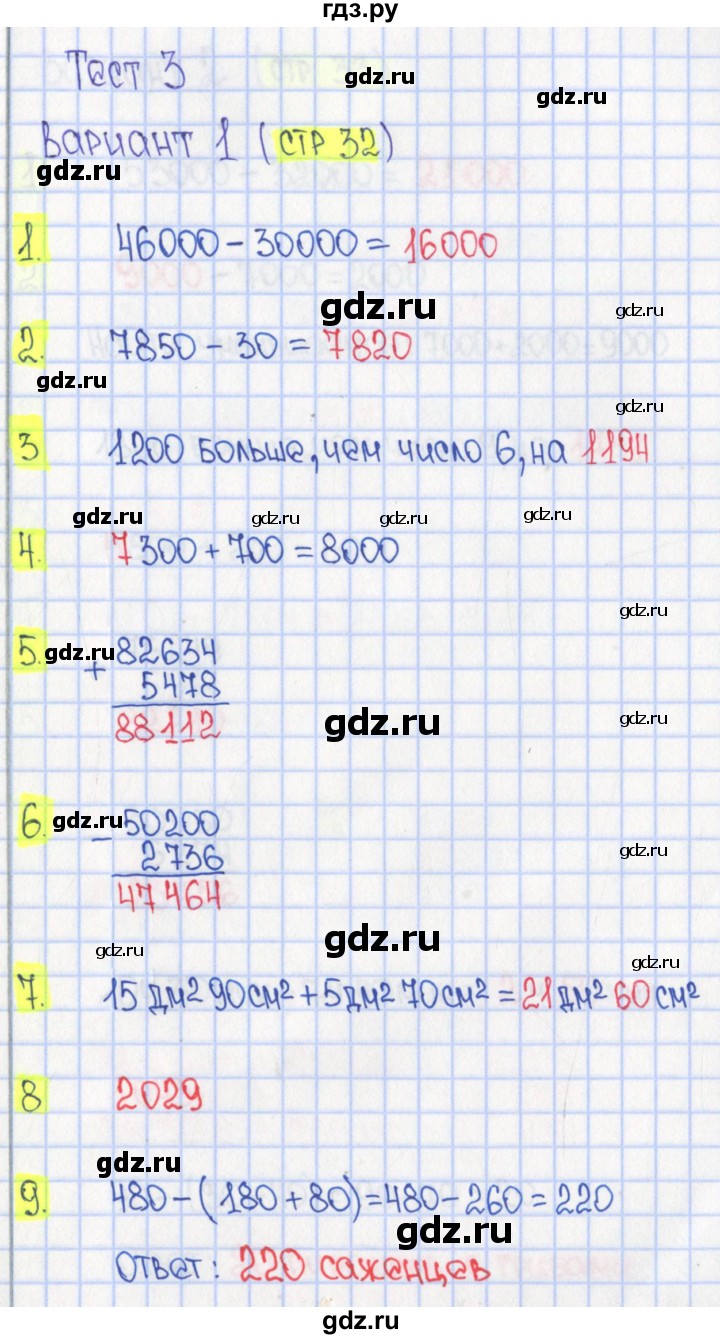 гдз.ру
Тест 3
gdz.ru
gdz.ru
Вариант 1 (стр 32)
gdz.ru
1. 46000 - 30000 = 16000
gdz.ru
gdz.ru
2. 7850 - 30 = 7820
gdz.ru
gdz.ru
3 1200 больше, чем число 6, на 1194
gdz.ru gdz.ru gdz.ru gdz.ru
4. 7300 + 700 = 8000
gdz.ru
5. gdz.ru + 82634
5478
88112
gdz.ru
gdz.ru
6. gdz.ru - 50200
2736
47464
gdz.ru
gdz.ru
gdz.ru
gdz.ru
7. 15 дм² 90 см² + 5 дм² 70 см² = 21 дм² 60 см²
8 2029
gdz.ru
9. 480 - (180 + 80) = 480 - 260 = 220
gdz.ru
Ответ: 220 саженцев
gdz.ru